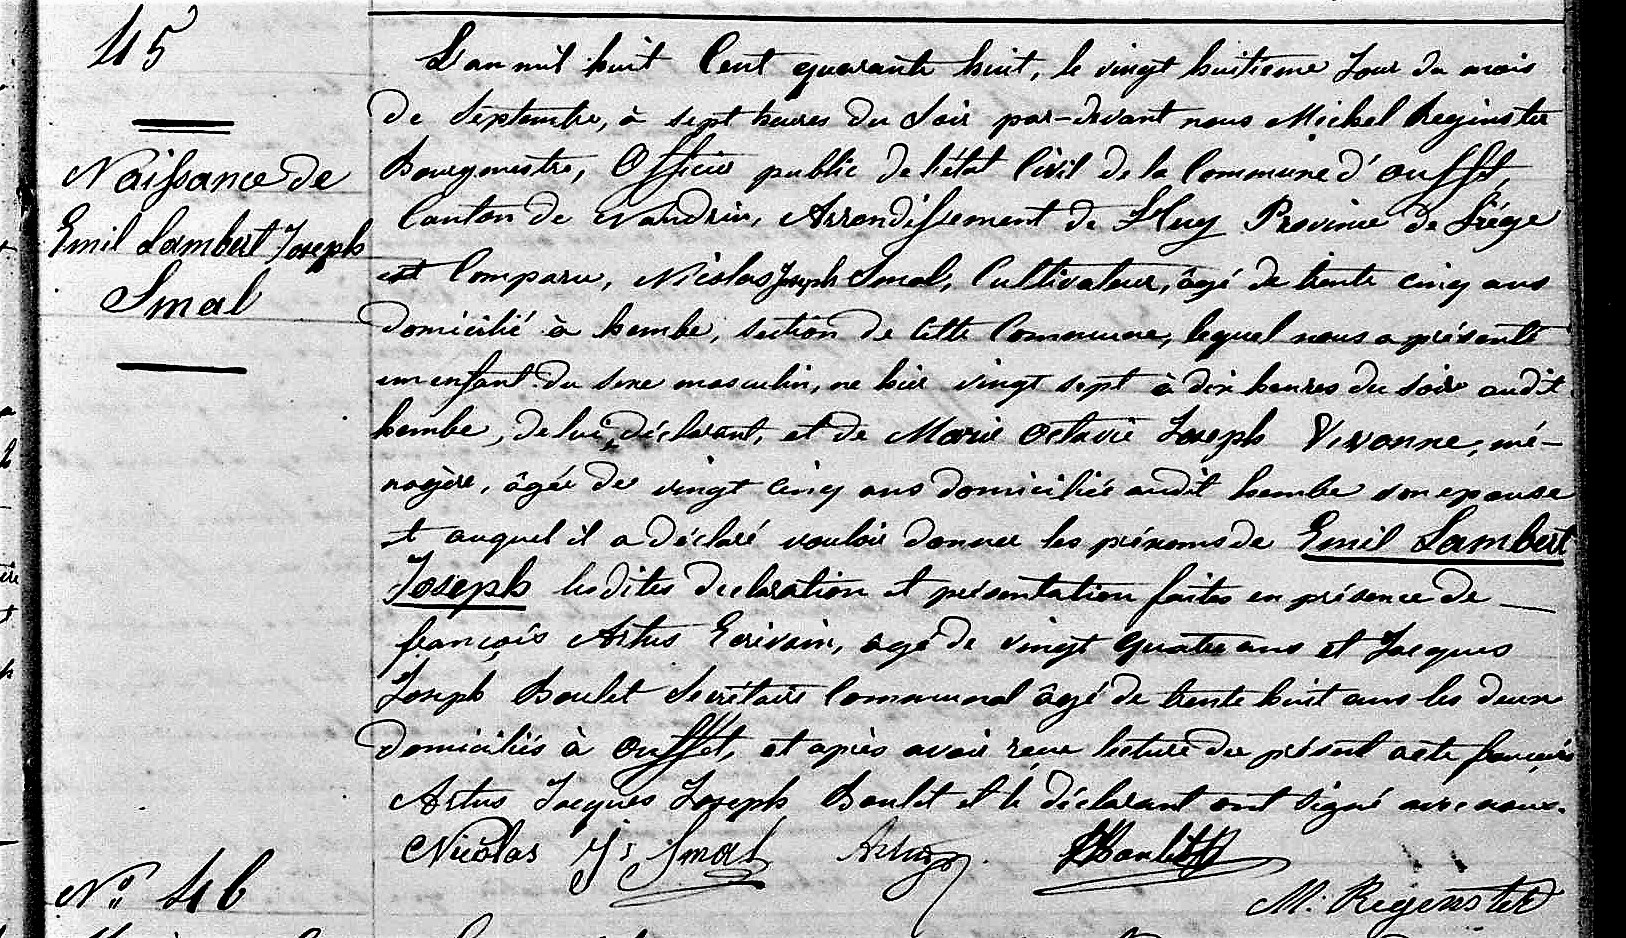 45
Naissance de
Emil Lambert Joseph
Smal
L'an mil huit Cent quarante huit, le vingt huitieme Jour du mois
de Septembre, à sept heures du Soir par-devant nous Michel Reginster
Bourgmestre, Officier public de l'état Civil de la Commune d'ouffet,
Canton de Nandrin, Arrondissement de Huy Province de Liége
est Comparu, Nicolas Joseph Smal, Cultivateur, âgé de trente cinq ans
domicilié à hembe, section de Cette Commune, lequel nous a présenté
un enfant du sexe masculin, ne hier vingt sept à dix heures du soir audit
hembe, de lui déclarant, et de Marie Octavie Joseph Vivonne, mé-
nagère, âgée de vingt cinq ans domiciliée audit hembe son epouse
et auquel il a déclaré vouloir donner les prénoms de Emil Lambert
Joseph les dites declaration et présentation faites en présence de
françois Artus Ecrivain, âgé de vingt quatre ans et Jacques
Joseph Boulet Secrétaire Communal âgé de trente huit ans les deux
domiciliés à ouffet, et après avoir recu lecture du présent acte françois
Artus Jacques Joseph Boulet et le déclarant ont signé avec nous.
Nicolas Js Smal Artus Boulet
M. Reginster
N° 46